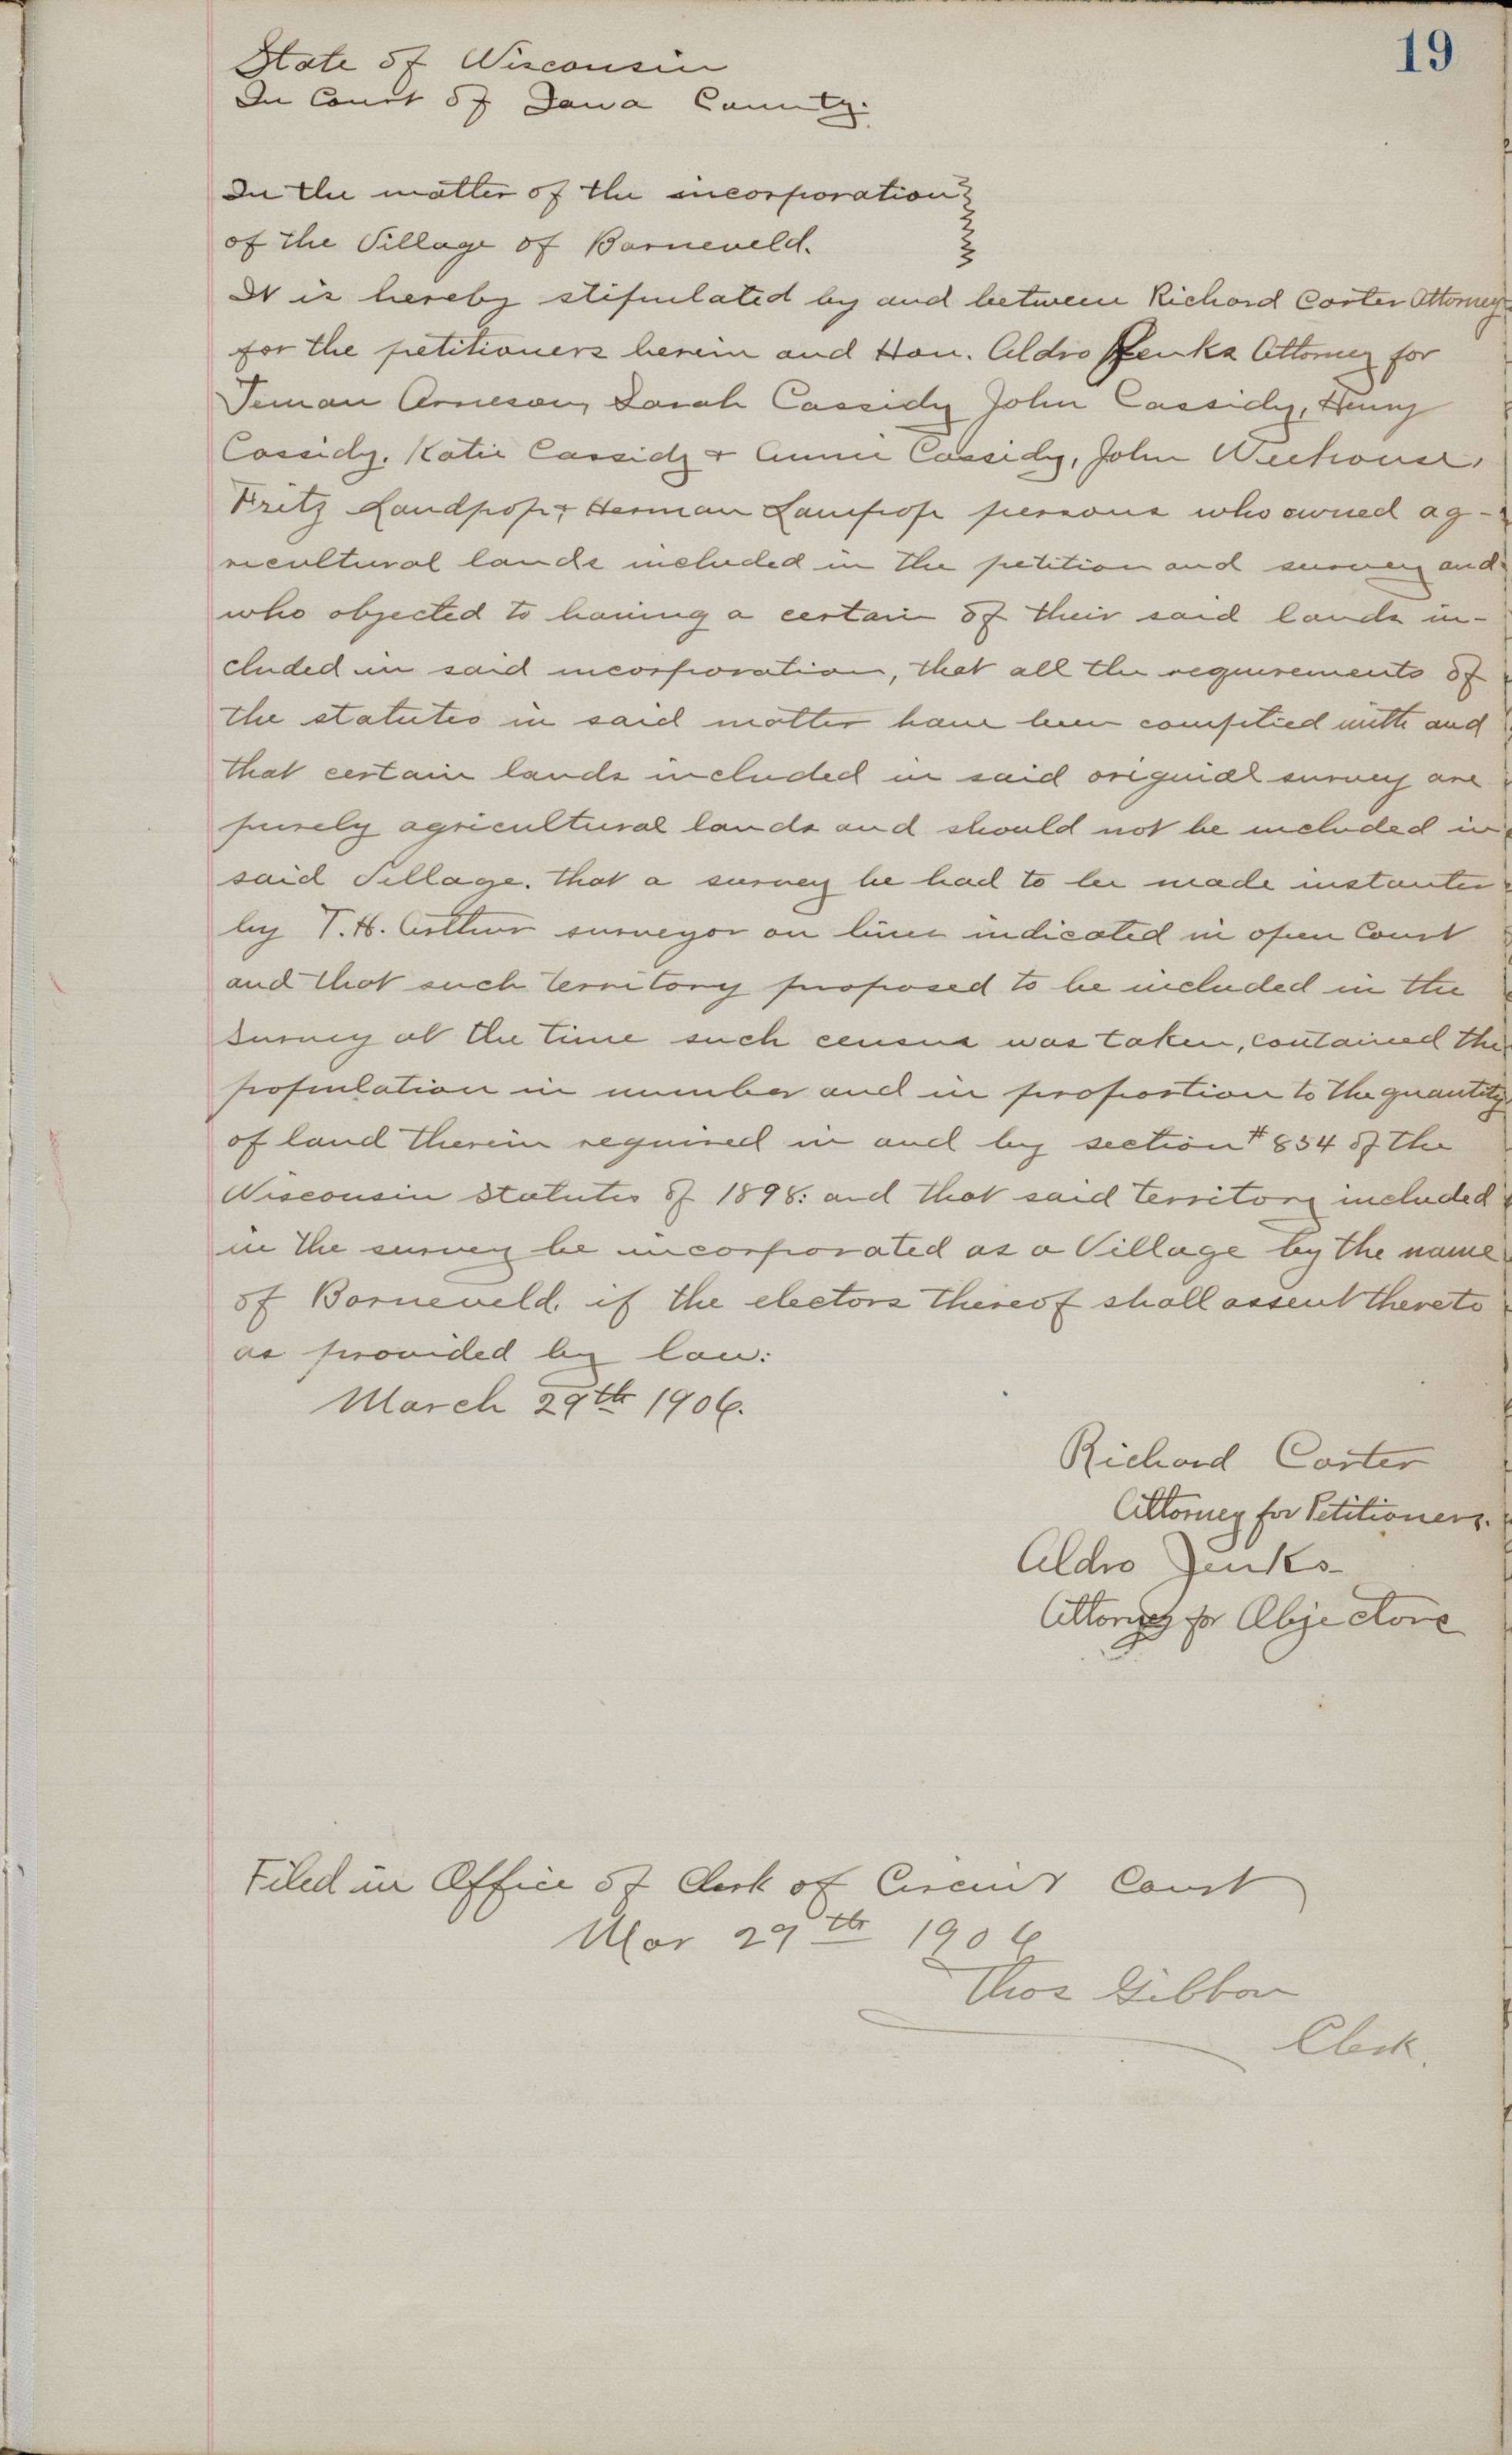 19
State of Wisconsin
In Court of Iowa County.
In the matter of the incorporation
of the Village of Barneveld.
It is hereby stipulated by and between Richard Carter Attorney
for the petitioners herein and Hon. Aldro Jenks Attorney for
Teman Arneson, Sarah Cassidy John Cassidy, Henry
Cassidy, Katie Cassidy + Annie Cassidy, John
Fritz Landpop + Herman Lampop persons who owned ag-
ricultural lands included in the petition and survey and
who objected to having a certain of their said lands in-
cluded in said incorporation, that all the requirements of
the statutes in said matter have been complied with and
that certain lands included in said original survey are
purely agricultural lands and should not be included in
said Village. that a survey be had to be made instanter
by T. H. Arthur surveyor on lines indicated in open Court
and that such territory proposed to be included in the
survey at the time such census was taken, contained the
population in number and in proportion to the quantity
of land therein required in and by section # 854 of the
Wisconsin Statutes of 1898: and that said territory included
in the survey be incorporated as a Village by the name
of Barneveld. if the electors thereof shall assent thereto
as provided by law:
March 29th 1906.
Richard Carter
Attorney for Petitioners.
Aldro Jenks
Attorney for Objectors
Filed in Office of Clerk of Circuit Court
Mar 29th 1906
Thos Gibbon
Clerk.